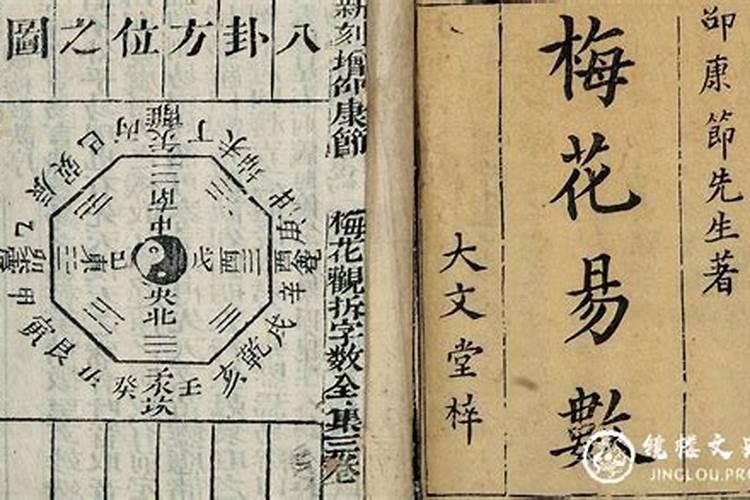 邵康節先生著
梅花易數
大文堂梓
新刻增卲康節
梅花觀拆字數全集三卷
八卦方位之圖
巽巳丙離丁未坤申
庚兌辛戌乾亥
壬坎癸丑艮寅
甲乙辰
南
中央
北
東
酉
戊
己
JINGLOU.PR